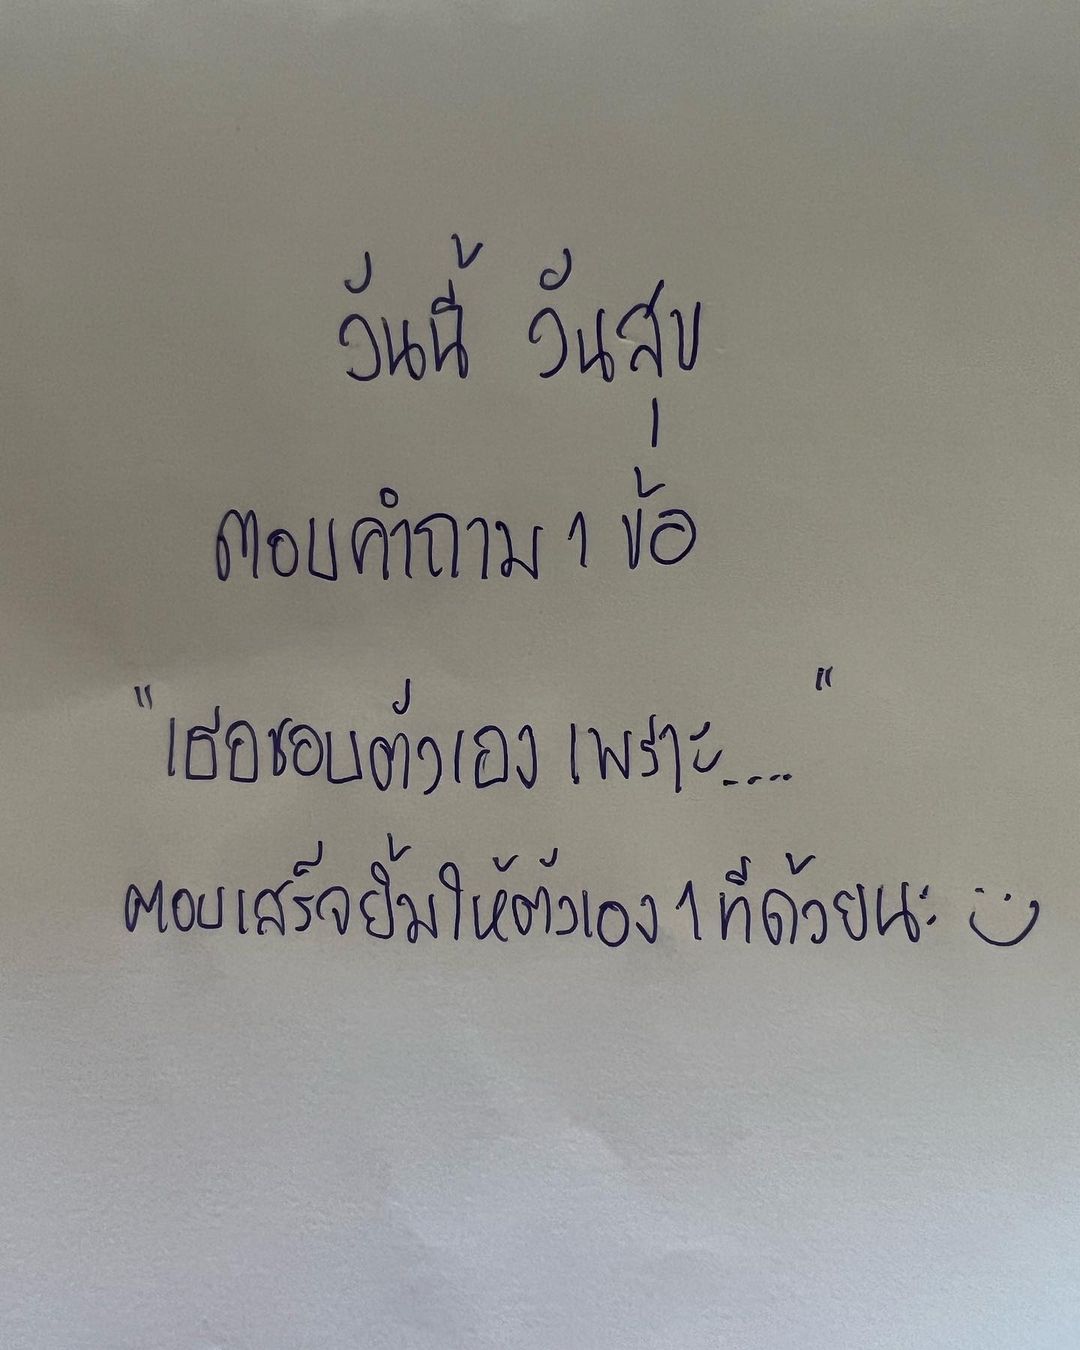 วันนี้ วันสุข
ตอบคำถาม 1 ข้อ
"เธอชอบตัวเอง เพราะ...."
ตอบเสร็จยิ้มให้ตัวเอง 1 ทีด้วยนะ